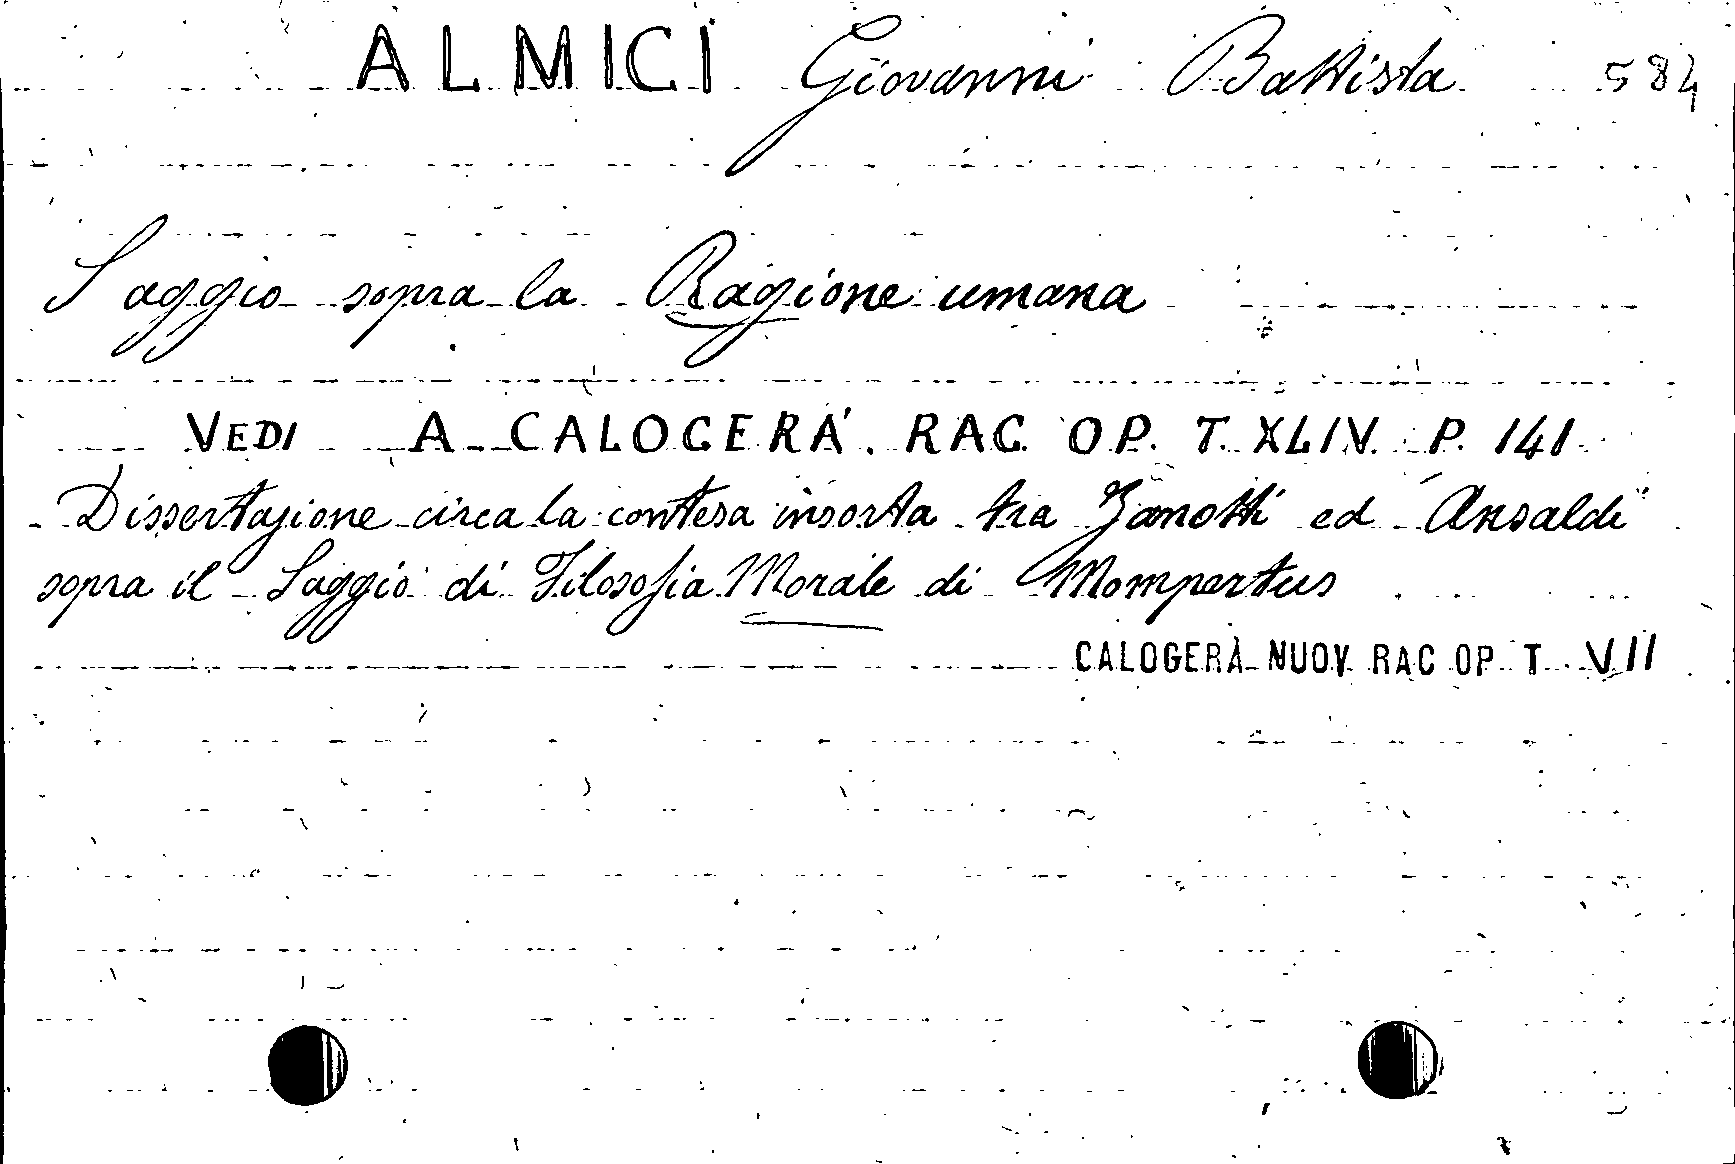 ALMICI Giovanni Battista 584
Saggio sopra la Ragione umana
VEDI A. CALOGERÁ. RAC. OP. T. XLIV. P. 141
Dissertazione circa la contesa insorta tra Zanotti ed Ansaldi
sopra il Saggio di Filosofia Morale di Mompertus
CALOGERÀ NUOV. RAC OP T VII